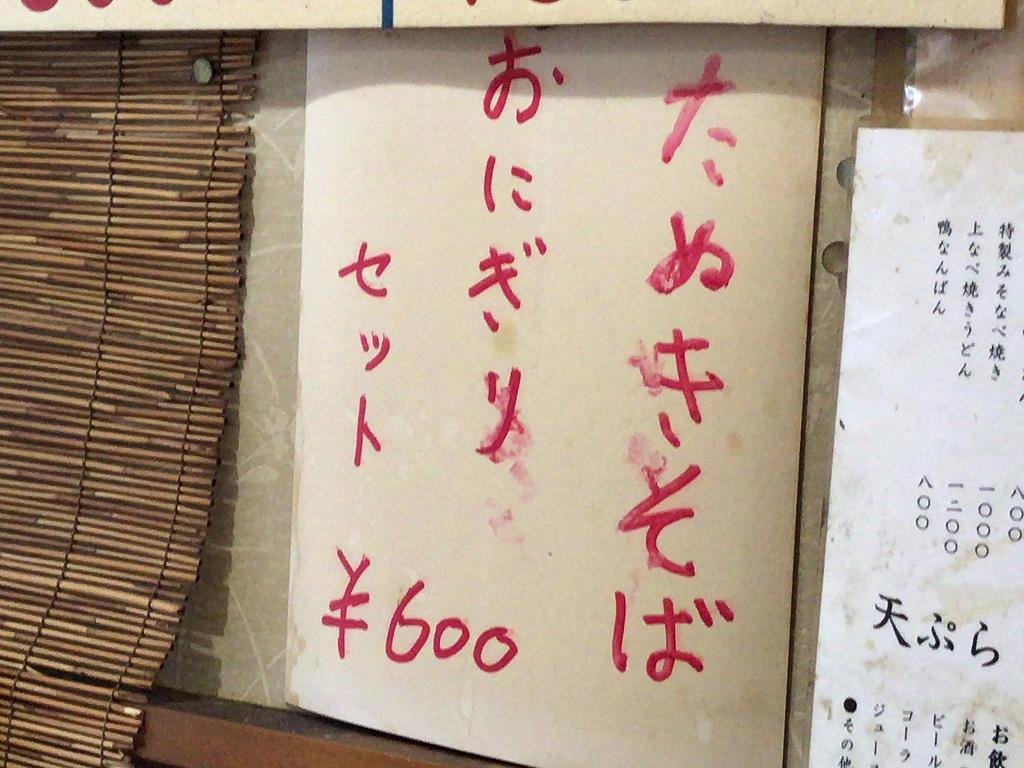 たぬきそば
おにぎり
セット
¥600
特製みそなべ焼き
上なべ焼きうどん
鴨なんばん
八〇〇
一〇〇〇
一二〇〇
八〇〇
天ぷら
お飲
お酒
ビール
コーラ
ジュース
●その他